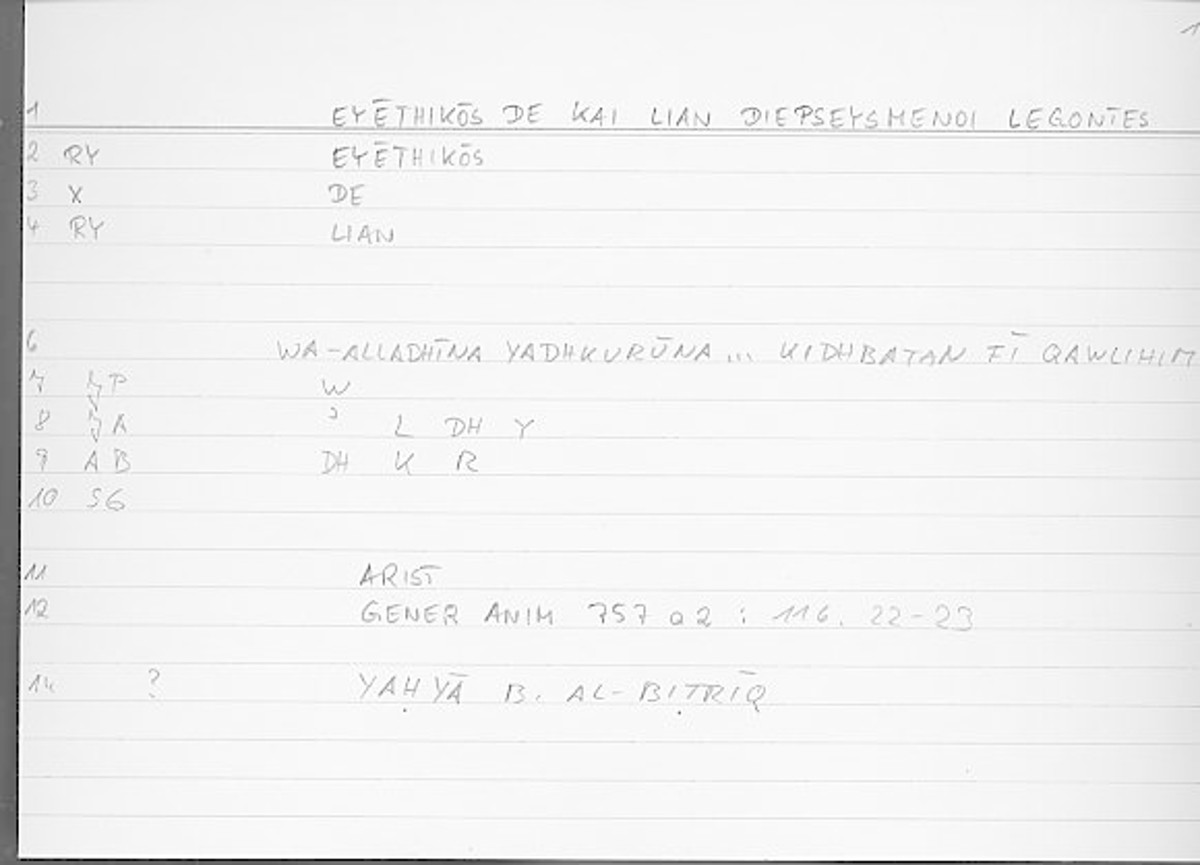 1
1 EYĒTHIKŌS DE KAI LIAN DIEPSEYSMENOI LEGONTES
2 RY EYĒTHIKŌS
3 X DE
4 RY LIAN
6 WA-ALLADHĪNA YADHKURŪNA... KIDHBATAN FĪ QAWLIHIM
7 P W
8 A ʾ L DH Y
9 AB DH K R
10 SG
11 ARIST
12 GENER ANIM 757 a 2 : 116. 22-23
14 ? YAḤYĀ B. AL-BIṬRĪQ